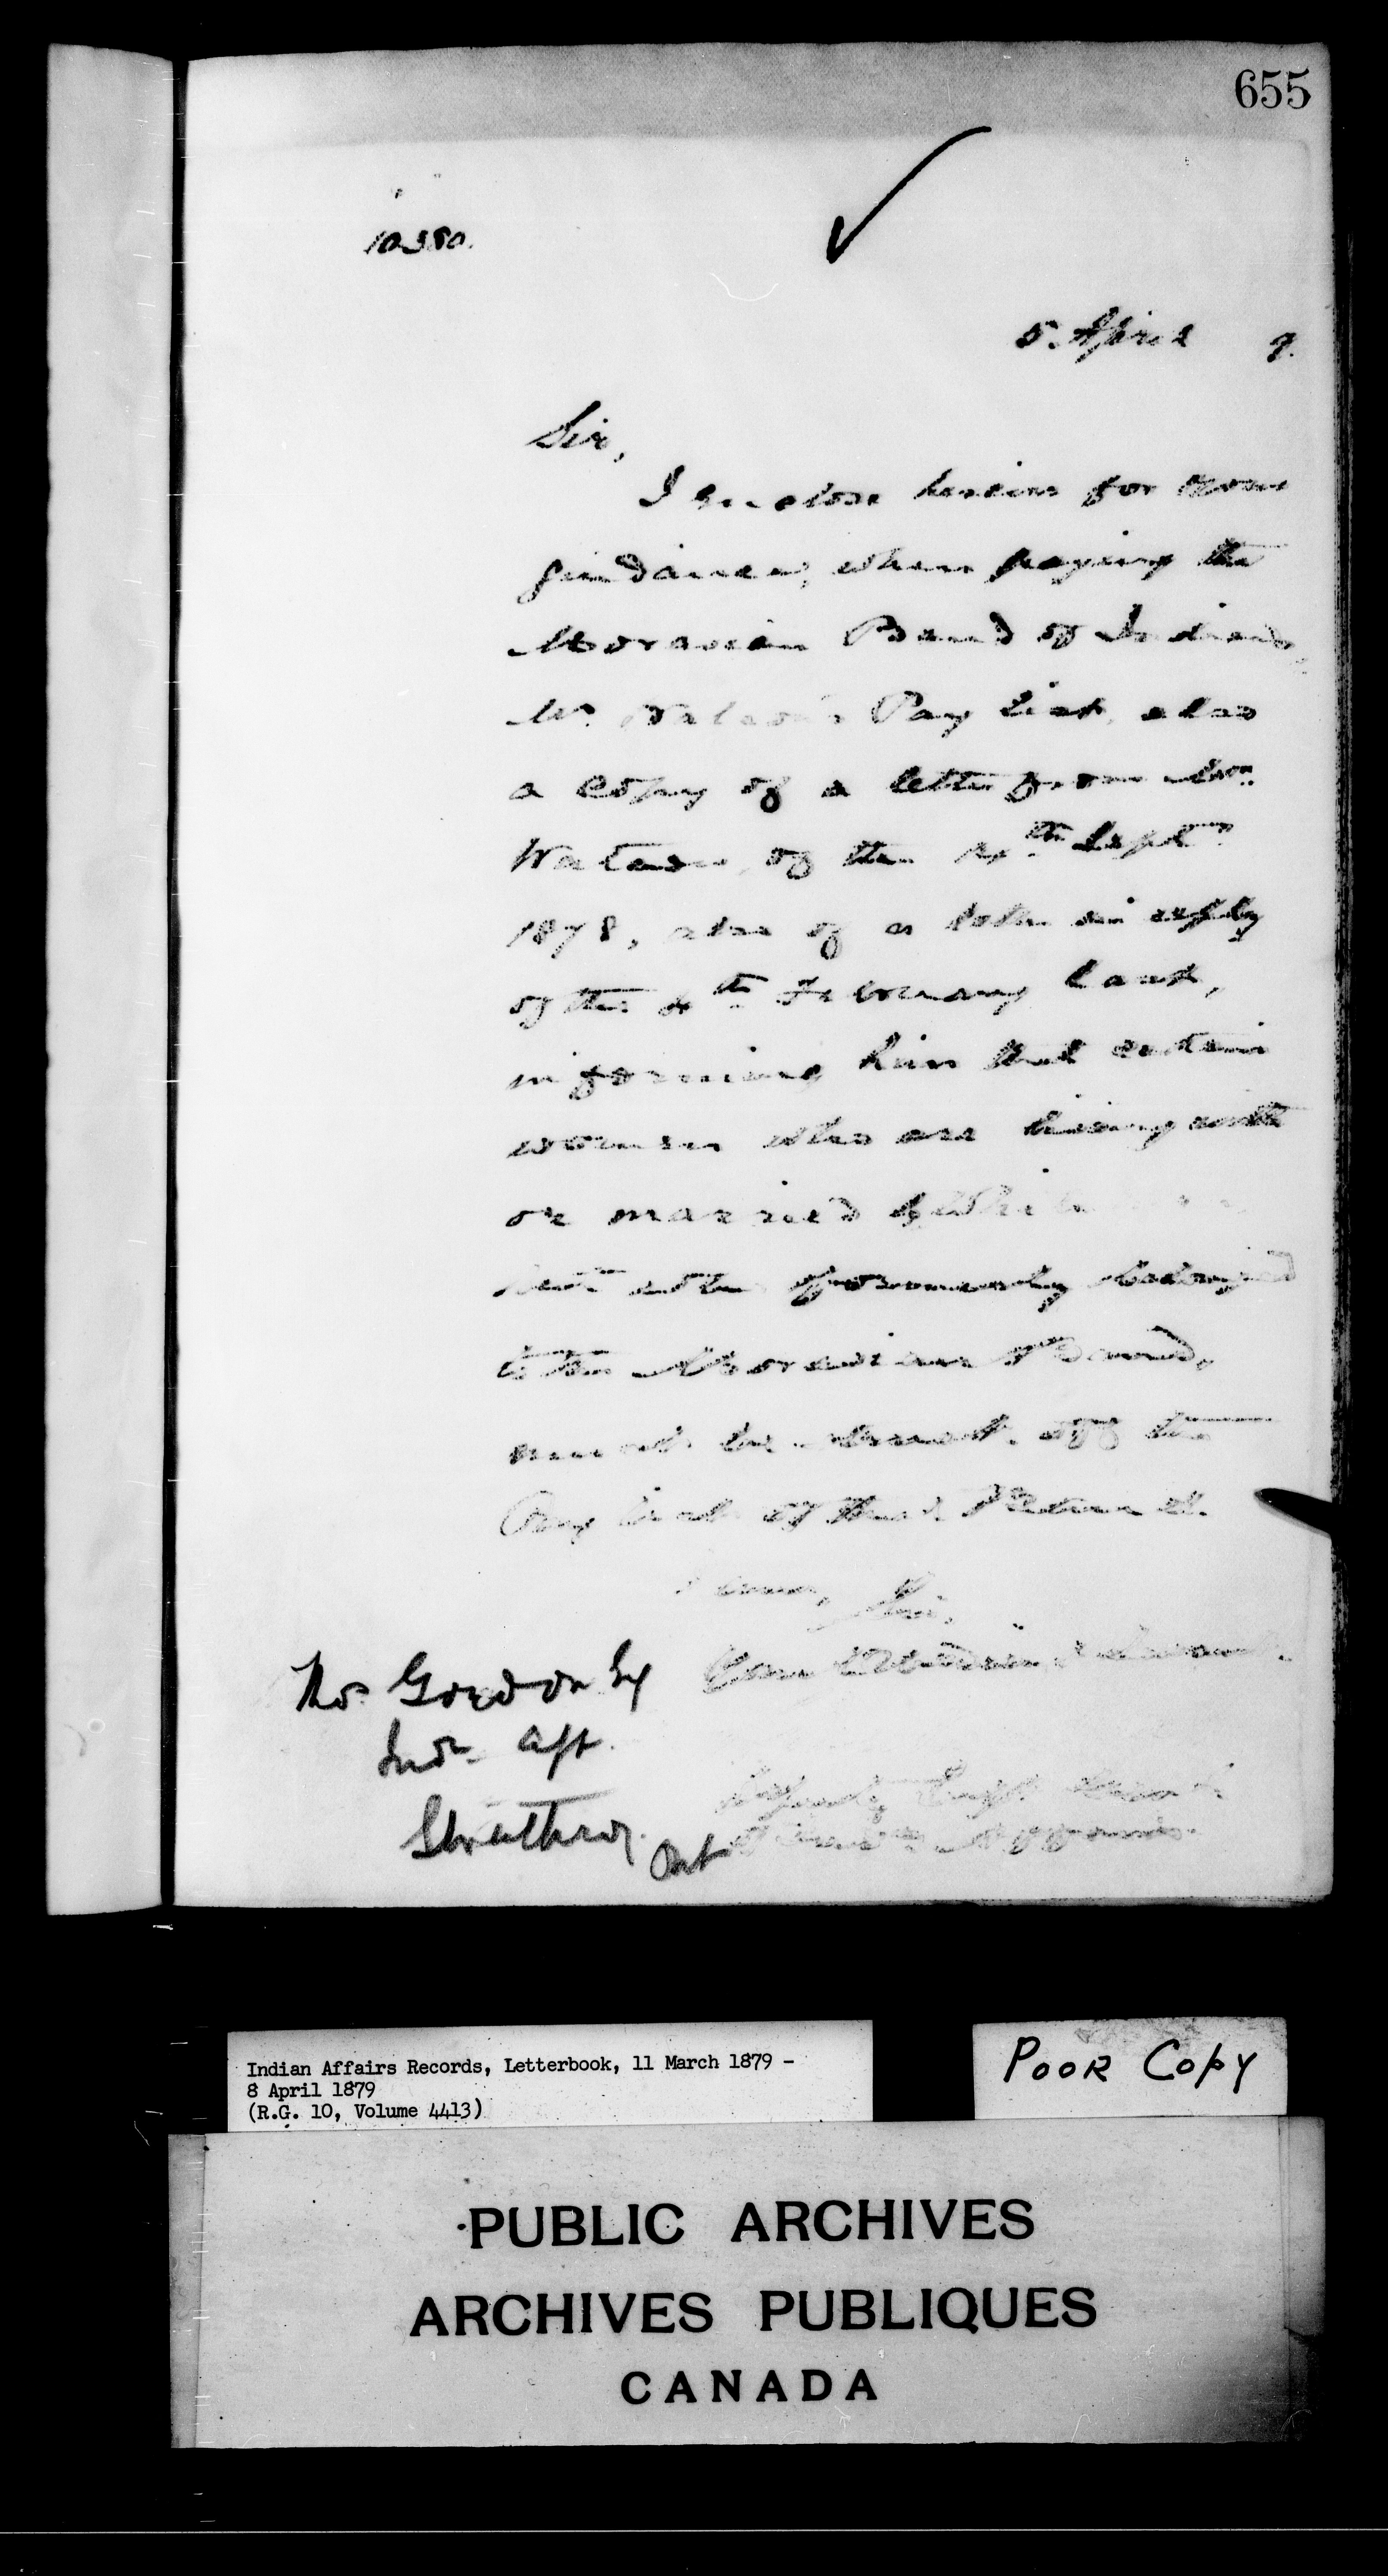 655
10380.
5. April 9.
Sir,
I enclose herein for your
guidance, when paying the
Moravian Band of Indians,
Mr. Watson's Pay List, also
a Copy of a letter from Mr.
Watson, of the th Sept.
1878, also of a letter in reply
of the 4th February last,
informing him that certain
women who are living with
or married
but who formerly belonged
to the Moravian Band,
must be struck off the
Pay List of that Band.
I am, Sir,
Your Obedient Servant.
Thos. Gordon Esq
Ind. Agt.
Strathroy. Ont
Deputy Supt. Genl.
of Indn. Affairs.
Indian Affairs Records, Letterbook, 11 March 1879 -
8 April 1879
(R.G. 10, Volume 4413)
POOR COPY
PUBLIC ARCHIVES
ARCHIVES PUBLIQUES
CANADA